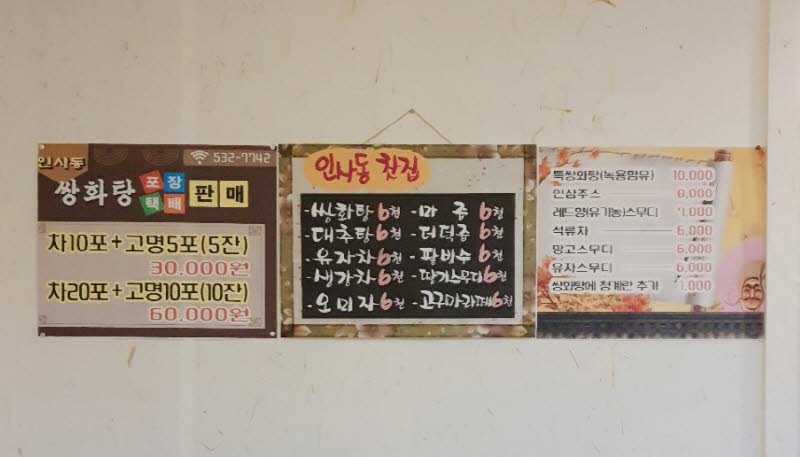 인사동
532-7742
쌍화탕 포장 택배 판매
차10포+고명5포(5잔)
30.000원
차20포+고명10포(10잔)
60.000원
인사동 찻집
·쌍화탕 6천 ·마 즙 6천
·대추탕 6천 ·더덕즙 6천
·유자차 6천 ·팥빙수 6천
·생강차 6천 ·딸기스무디 6천
·오미자 6천 ·고구마라떼 6천
특쌍화탕(녹용함유) 10,000
인삼주스
레드향(유기농)스무디
석류차 6,000
망고스무디 6,000
유자스무디 6,000
쌍화탕에 청계란 추가 1,000